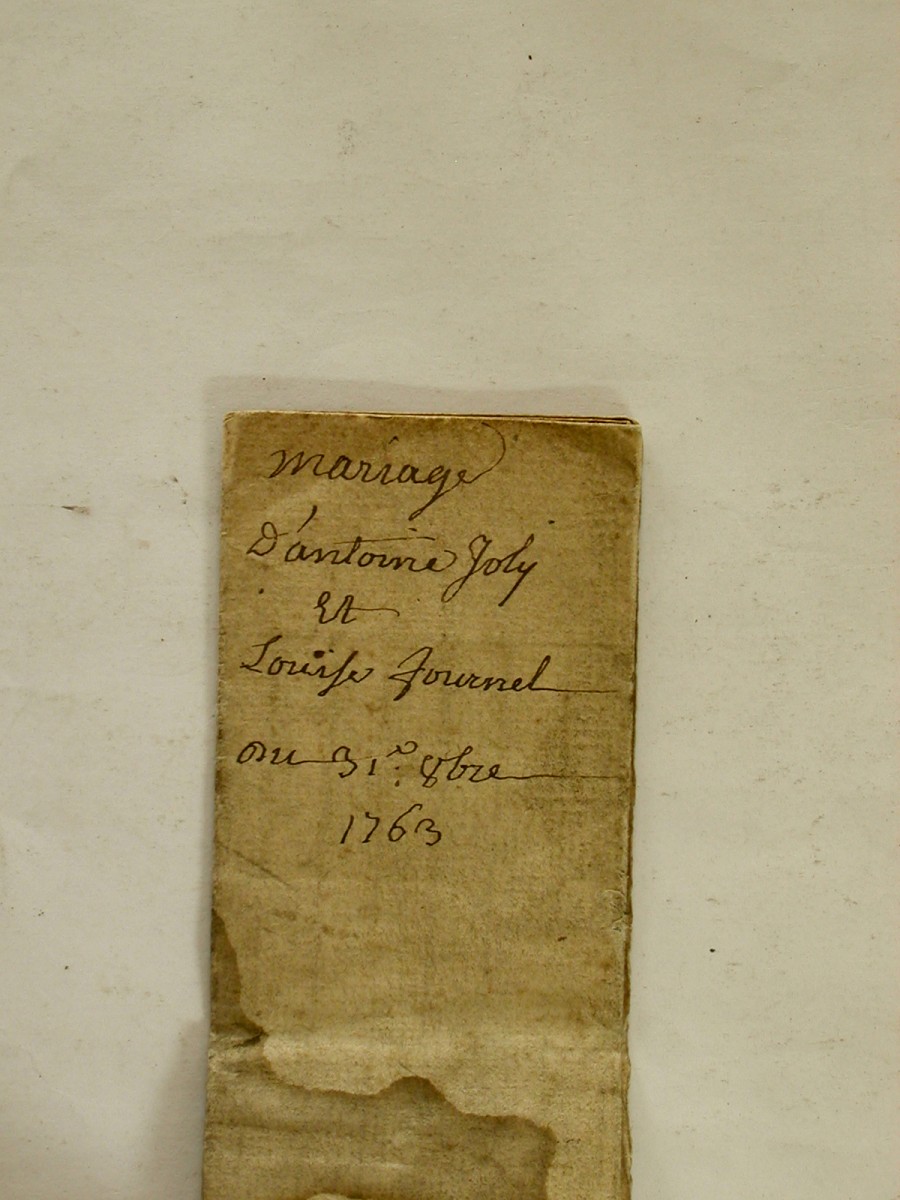 mariage
D'antoine Joly
Et
Louise Journel
Du 31.º 8bre
1763